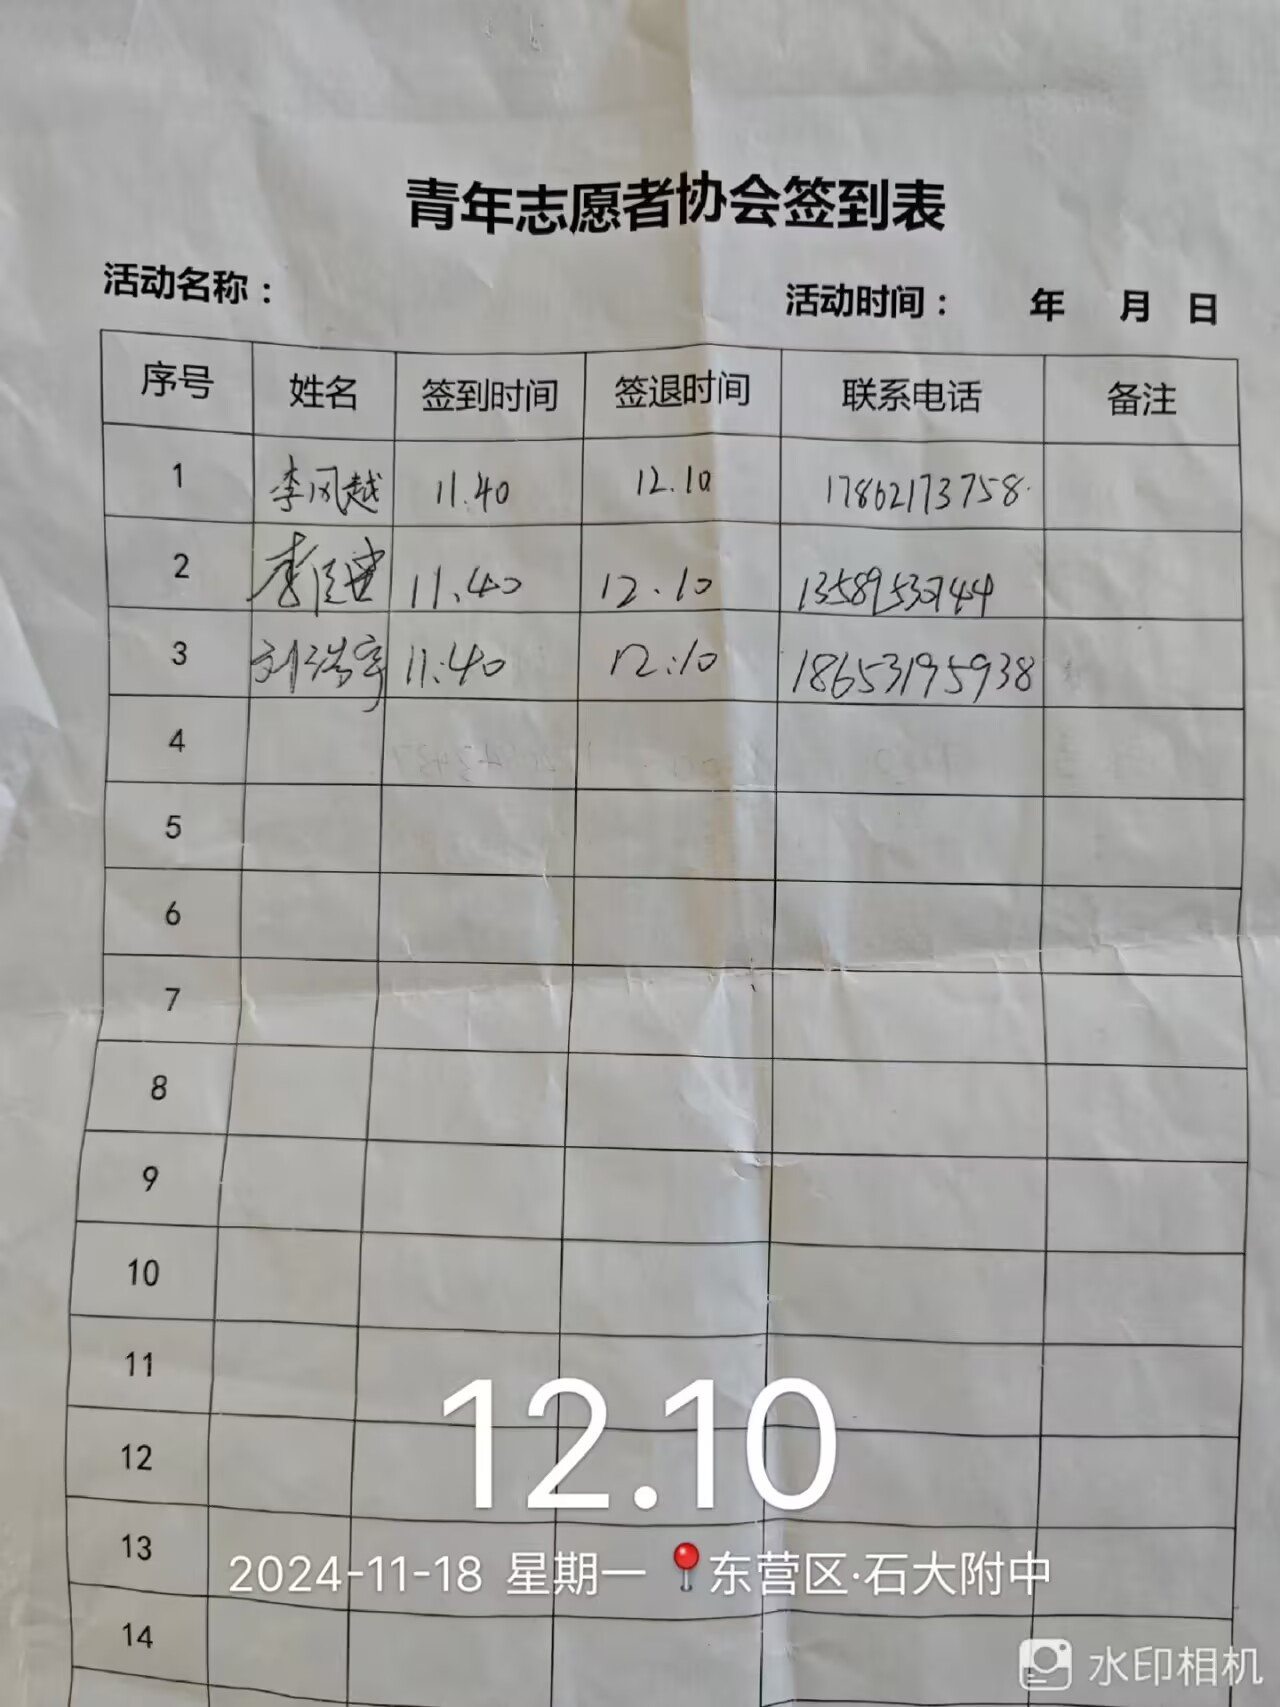 青年志愿者协会签到表
活动名称： 活动时间： 年 月 日
序号 姓名 签到时间 签退时间 联系电话 备注
1 李风越 11.40 12.10 17862173758
2 11.40 12.10
3 刘浩宇 11:40 12:10 18653195938
4
5
6
7
8
9
10
11
12
13
14
12.10
2024-11-18 星期一 东营区·石大附中
水印相机